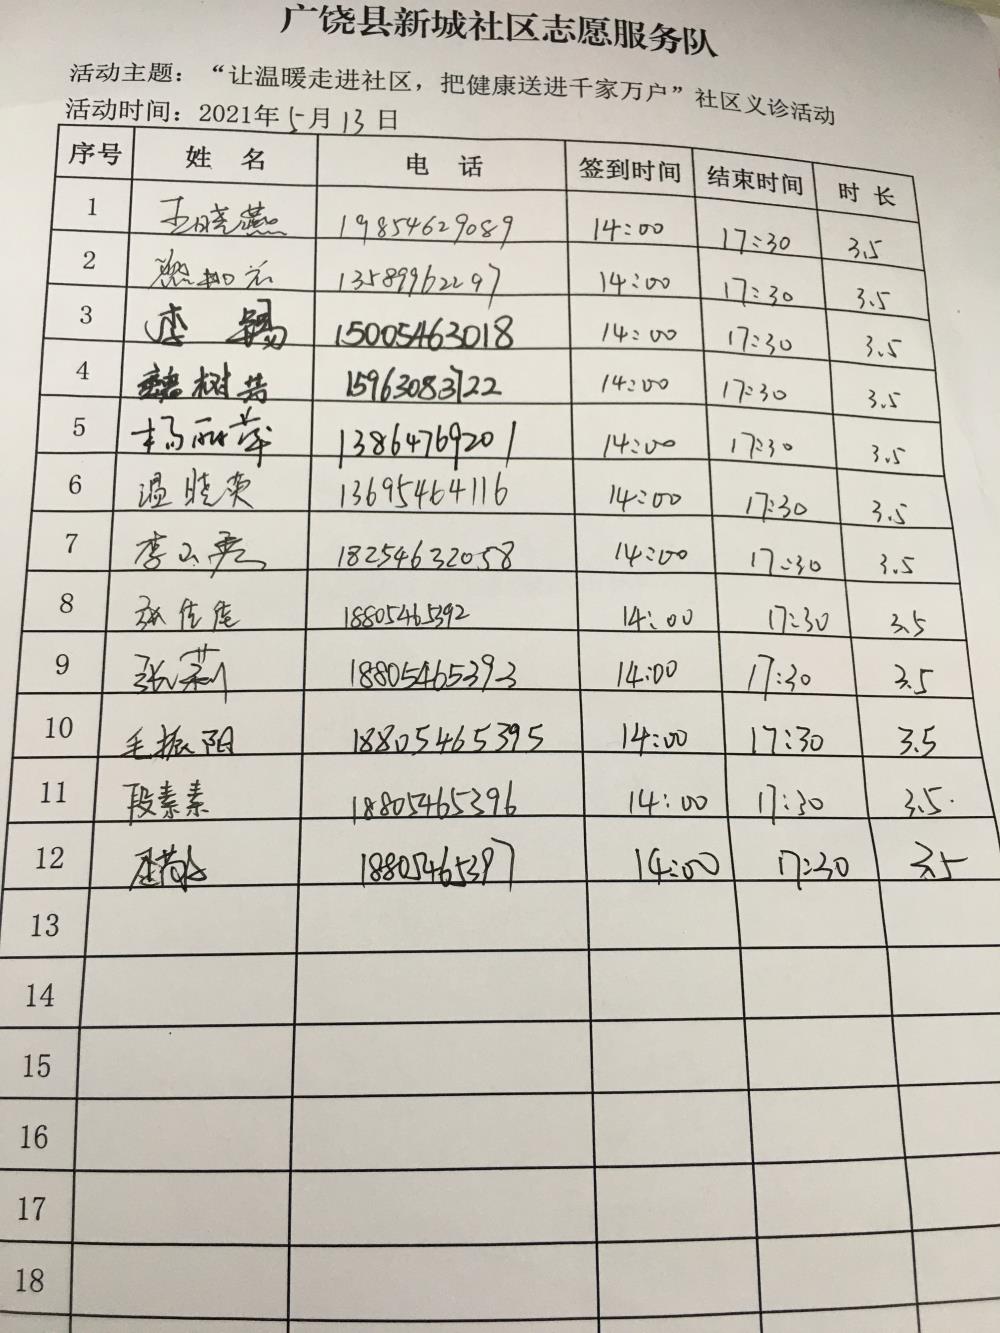 广饶县新城社区志愿服务队
活动主题：“让温暖走进社区，把健康送进千家万户”社区义诊活动
活动时间：2021年5月13日
序号 姓名 电话 签到时间 结束时间 时长
1 王晓燕 19854629089 14:00 17:30 3.5
2 13589962297 14:00 17:30 3.5
3 李 15005463018 14:00 17:30 3.5
4 魏树芸 15963083722 14:00 17:30 3.5
5 杨丽萍 13864769201 14:00 17:30 3.5
6 温晓英 13695464116 14:00 17:30 3.5
7 李 18254632058 14:00 17:30 3.5
8 张佳佳 18805465392 14:00 17:30 3.5
9 张莉 18805465393 14:00 17:30 3.5
10 毛振阳 18805465395 14:00 17:30 3.5
11 段素素 18805465396 14:00 17:30 3.5
12 18805465397 14:00 17:30 3.5
13
14
15
16
17
18